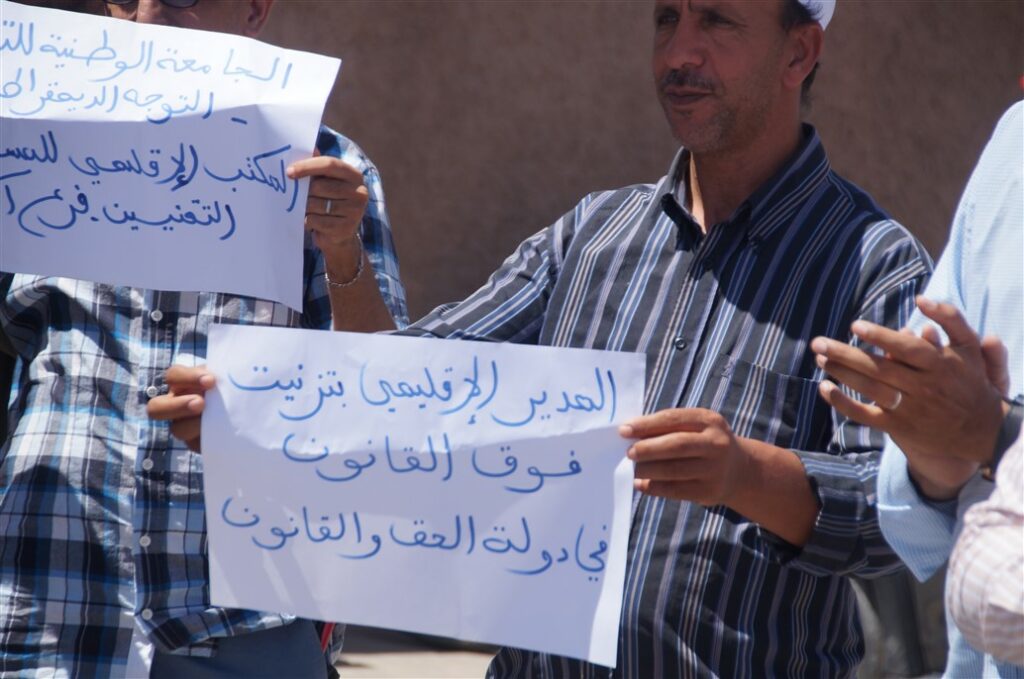 الجامعة الوطنية للت
ـ التوجه الديمقراط
المكتب الإقليمي للمسـ
التقنيين ـ فرع
المدير الإقليمي بتزنيت
فوق القانون
في دولة الحق والقانون